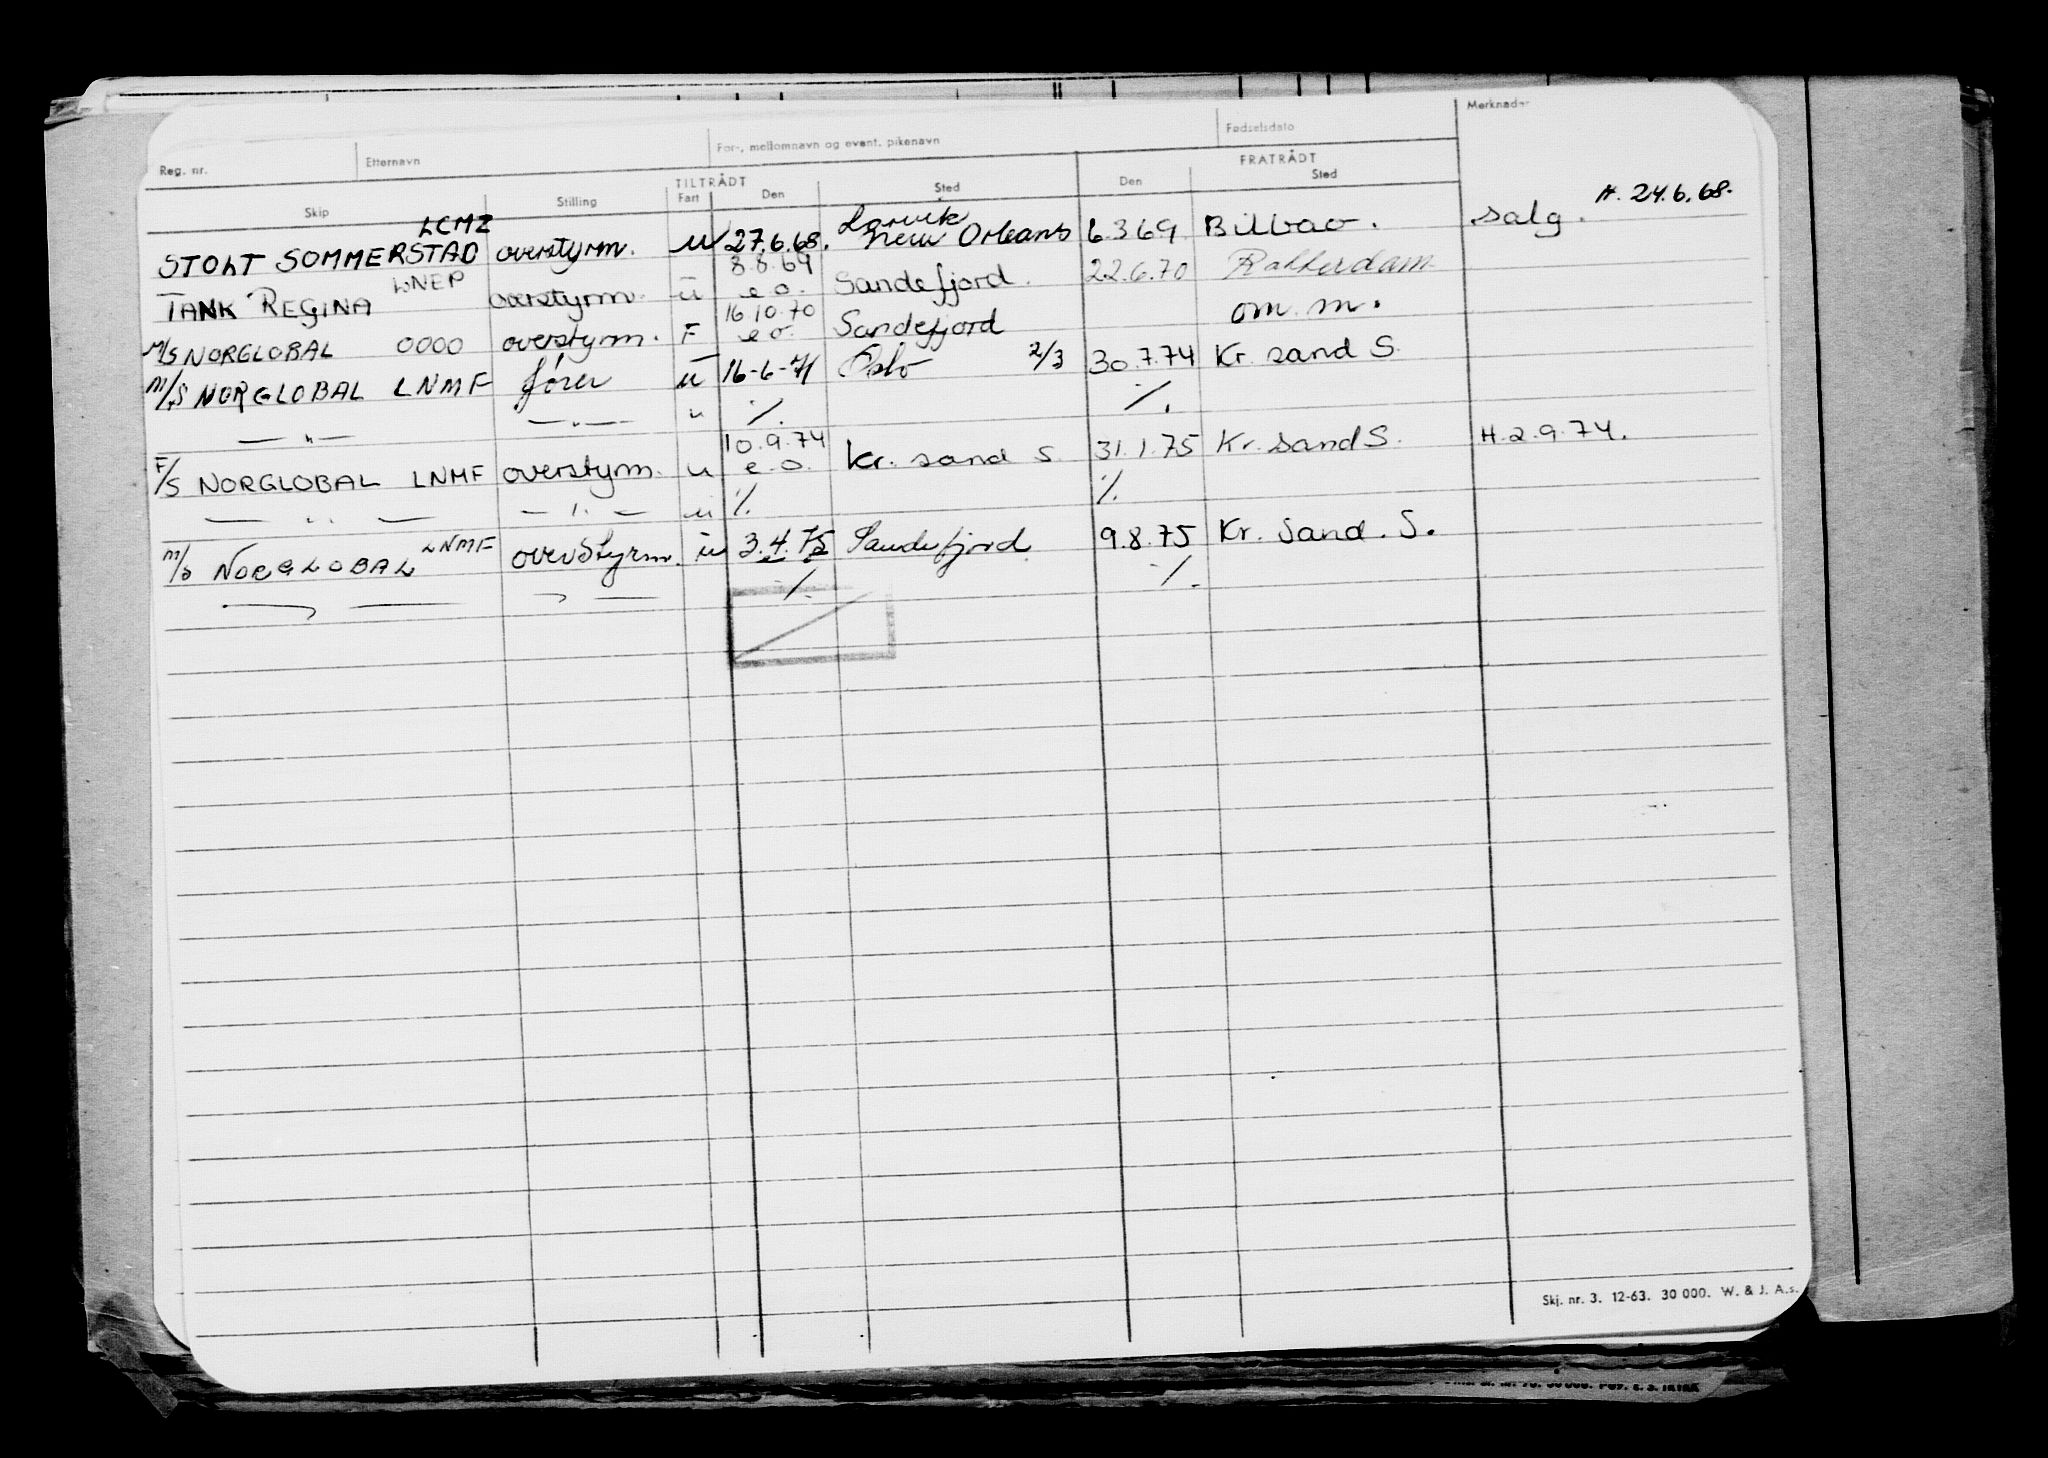 Reg. nr. Etternavn For-, mellomnavn og event. pikenavn Fødselsdato Merknader
TILTRÅDT FRATRÅDT
Skip Stilling Fart Den Sted Den Sted
H. 24.6.68.
LCMZ Larvik
STOLT SOMMERSTAD overstyrm. u 27.6.68. New Orleans 6.3.69. Bilbao. salg.
LNEP 8.8.69
TANK REGINA overstyrm. u e.o. Sandefjord. 22.6.70 Rotterdam
16.10.70
M/S NORGLOBAL 0000 overstyrm. F e.o. Sandefjord om. m.
M/S NORGLOBAL LNMF fører u 16-6-71 Oslo 2/3 30.7.74 Kr. sand S.
— " — — " — u ./. ./.
10.9.74
F/S NORGLOBAL LNMF overstyrm. u e.o. Kr. sand S. 31.1.75 Kr. sand S. H. 2.9.74.
— " — — " — u ./. ./.
M/S NORGLOBAL LNMF overstyrm. u 3.4.75 Sandefjord 9.8.75 Kr. Sand. S.
— " — — " — ./. ./.
Skj. nr. 3. 12-63. 30 000. W. & J. A.s.